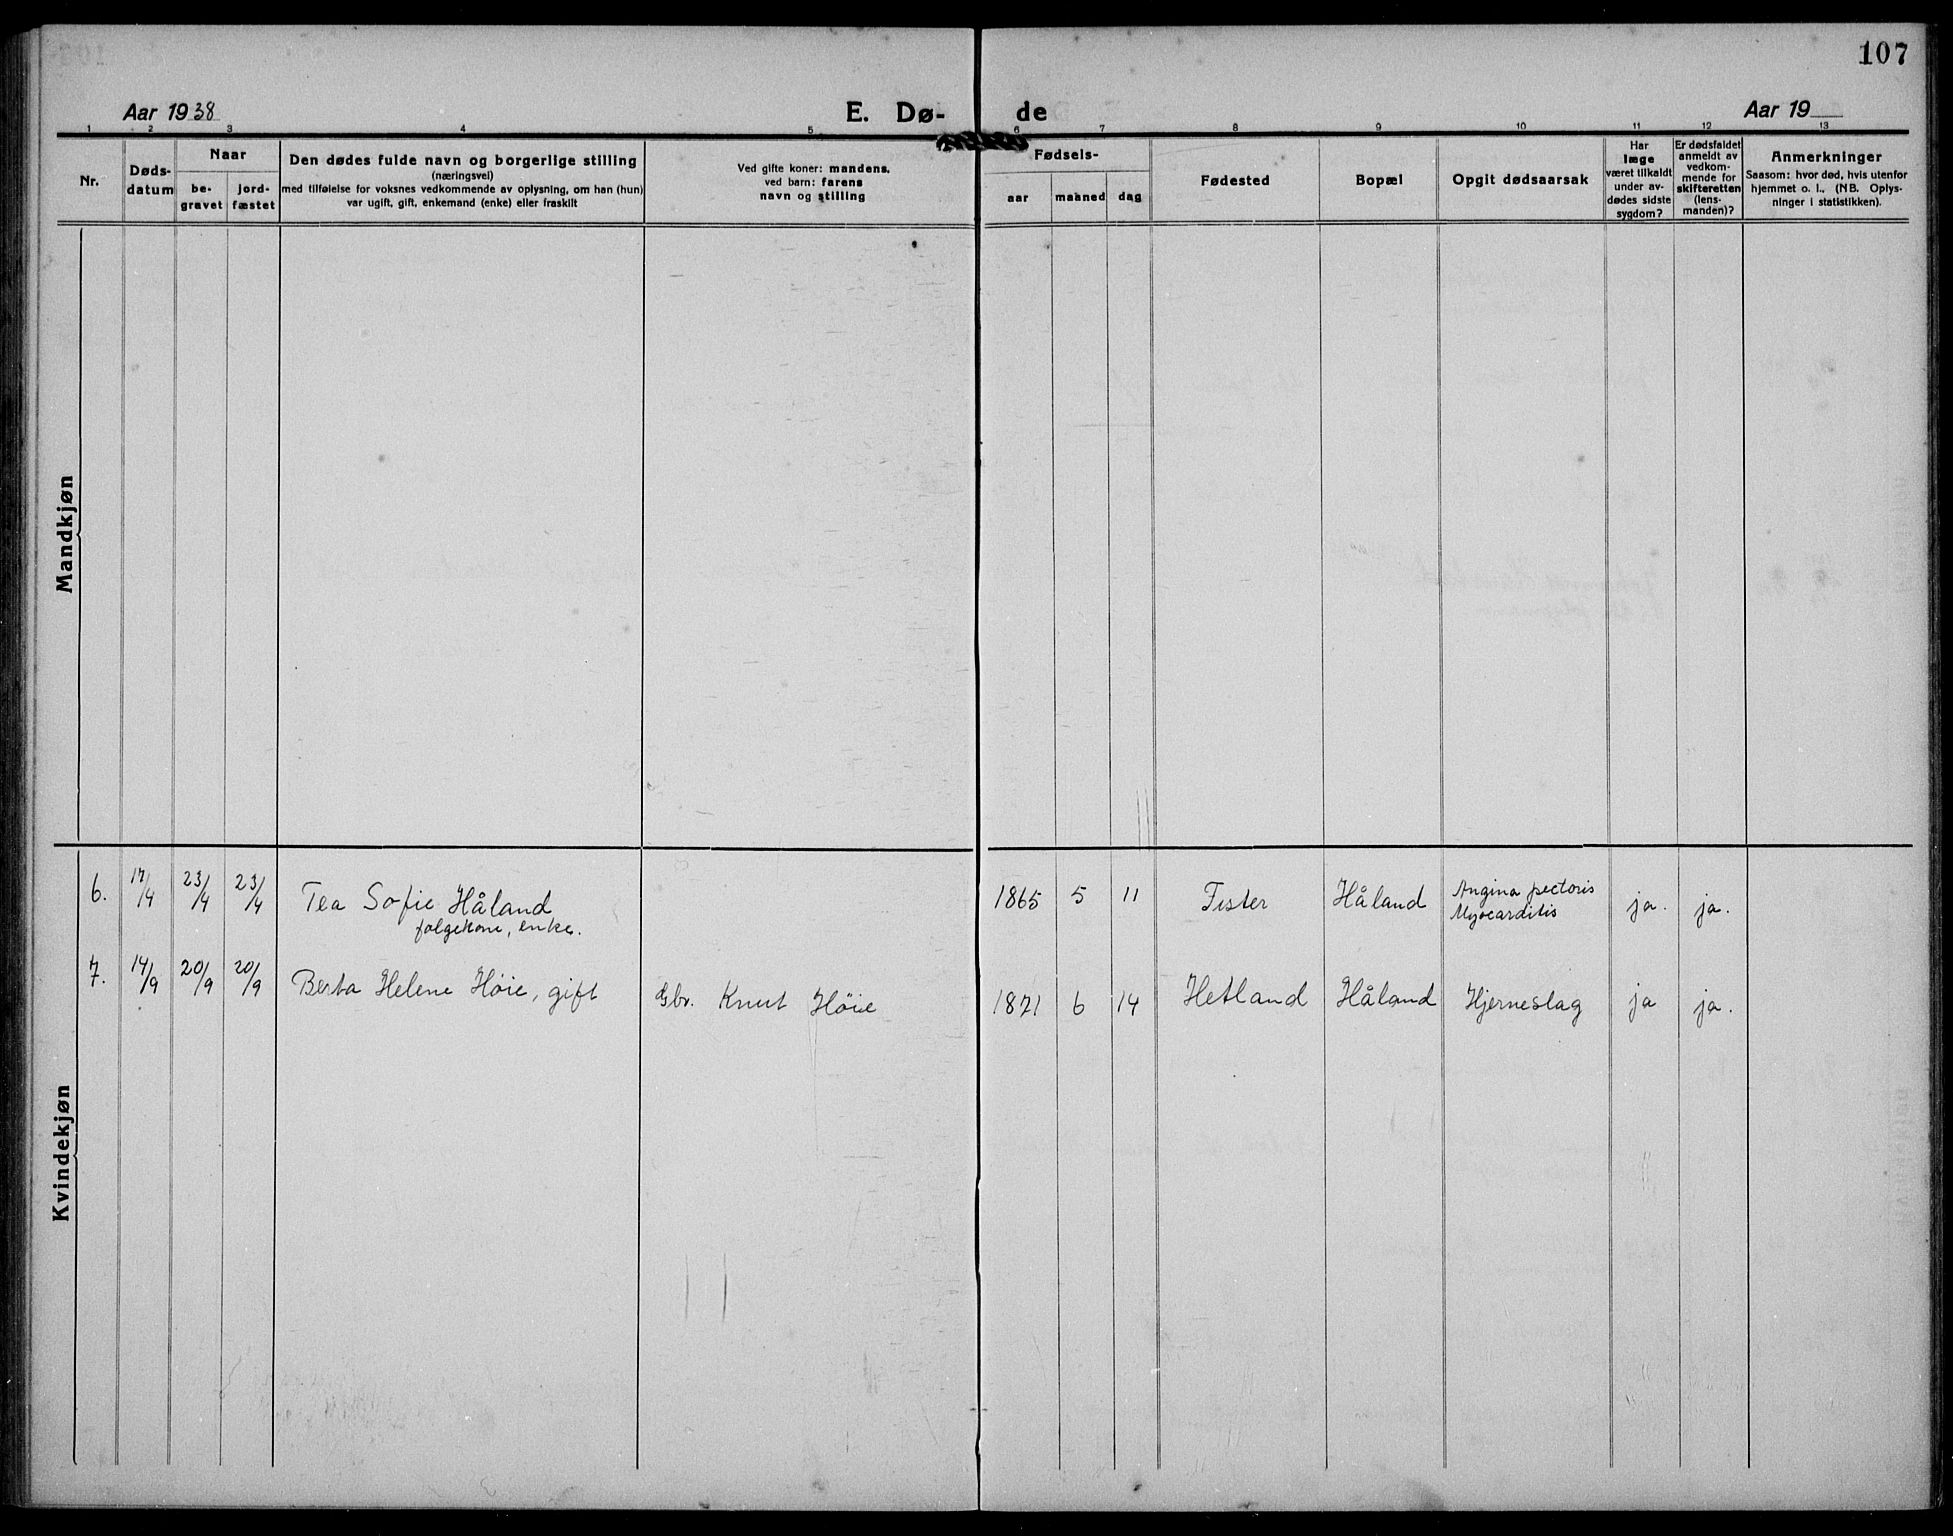 107
Aar 1938
E. Dø-
de
Aar 19
1 2 3 4 5 6 7 8 9 10 11 12 13
Nr.
Døds-
datum
Naar
be-
gravet
jord-
fæstet
Den dødes fulde navn og borgerlige stilling
(næringsvei)
med tilføielse for voksnes vedkommende av oplysning, om han (hun)
var ugift, gift, enkemand (enke) eller fraskilt
Ved gifte koner: mandens.
ved barn: farens
navn og stilling
Fødsels-
aar
maaned
dag
Fødested
Bopæl
Opgit dødsaarsak
Har
læge
været tilkaldt
under av-
dødes sidste
sygdom?
Er dødsfaldet
anmeldt av
vedkom-
mende for
skifteretten
(lens-
manden)?
Anmerkninger
Saasom: hvor død, hvis utenfor
hjemmet o. l., (NB. Oplys-
ninger i statistikken).
Mandkjøn
Kvindekjøn
6. 17/4 23/4 23/4 Tea Sofie Håland 1865 5 11 Fister Håland Angina pectoris ja. ja.
folgekone, enke. Myocarditis
7. 14/9 20/9 20/9 Berta Helene Höie, gift Gbr. Knut Höie 1871 6 14 Hetland Håland Hjerneslag ja ja.